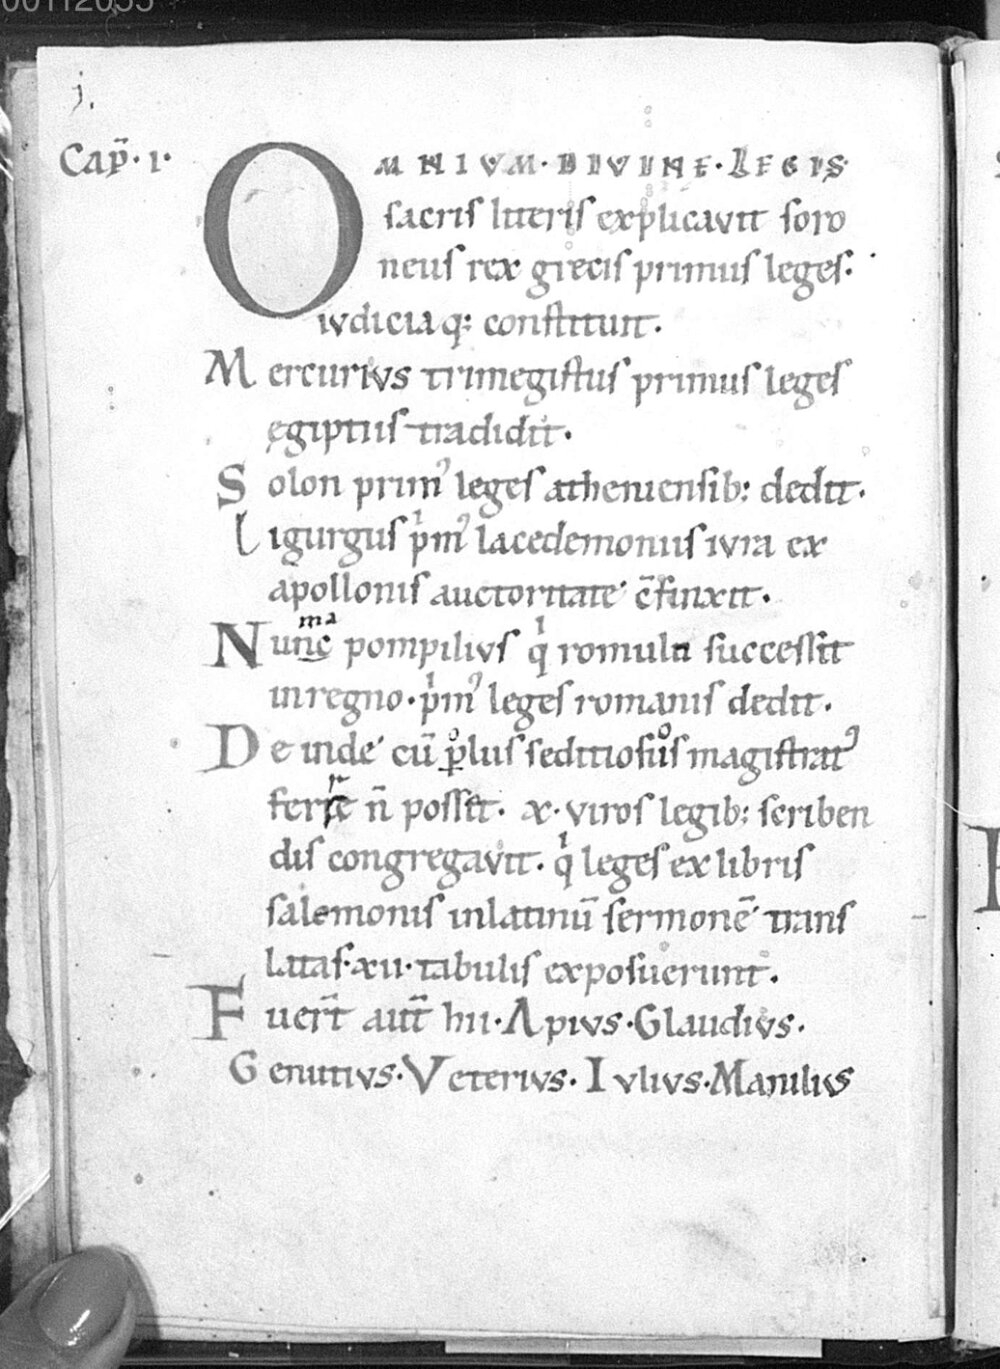 00112055
j.
Cap̄·1·
OMNIVM·DIVINE·LEGIS
sacris litteris explicavit foro
neus rex grecis primus leges·
ivdicia q: constituit·
Mercurivs trimegistus primus leges
egiptiis tradidit·
Solon prim᾿ leges atheniensib: dedit·
Ligurgus pͥm᾿ lacedemoniis ivra ex
apollonis auctoritate c̄finxit·
Nunc̄ ma pompilivs qͥ romulo successit
in regno·pͥm᾿ leges romanis dedit·
De inde cū pꝉus seditiosͦus magistrat᾿
ferre n̄ posset· x·viros legib: scriben
dis congregavit·qͥ leges ex libris
salemonis in latinū sermonē trans
latas·xii·tabulis exposuerunt·
Fuer̄t aut̄ hii·Apivs·Glaudivs·
Genutivs·Veterivs·Ivlivs·Manilivs